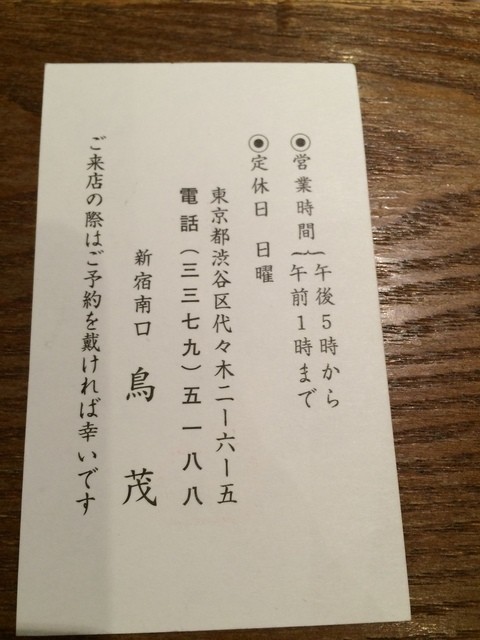 ◉営業時間 午後5時から
午前1時まで
◉定休日 日曜
東京都渋谷区代々木二ー六ー五
電話(三三七九)五一八八
新宿南口 鳥茂
ご来店の際はご予約を戴ければ幸いです